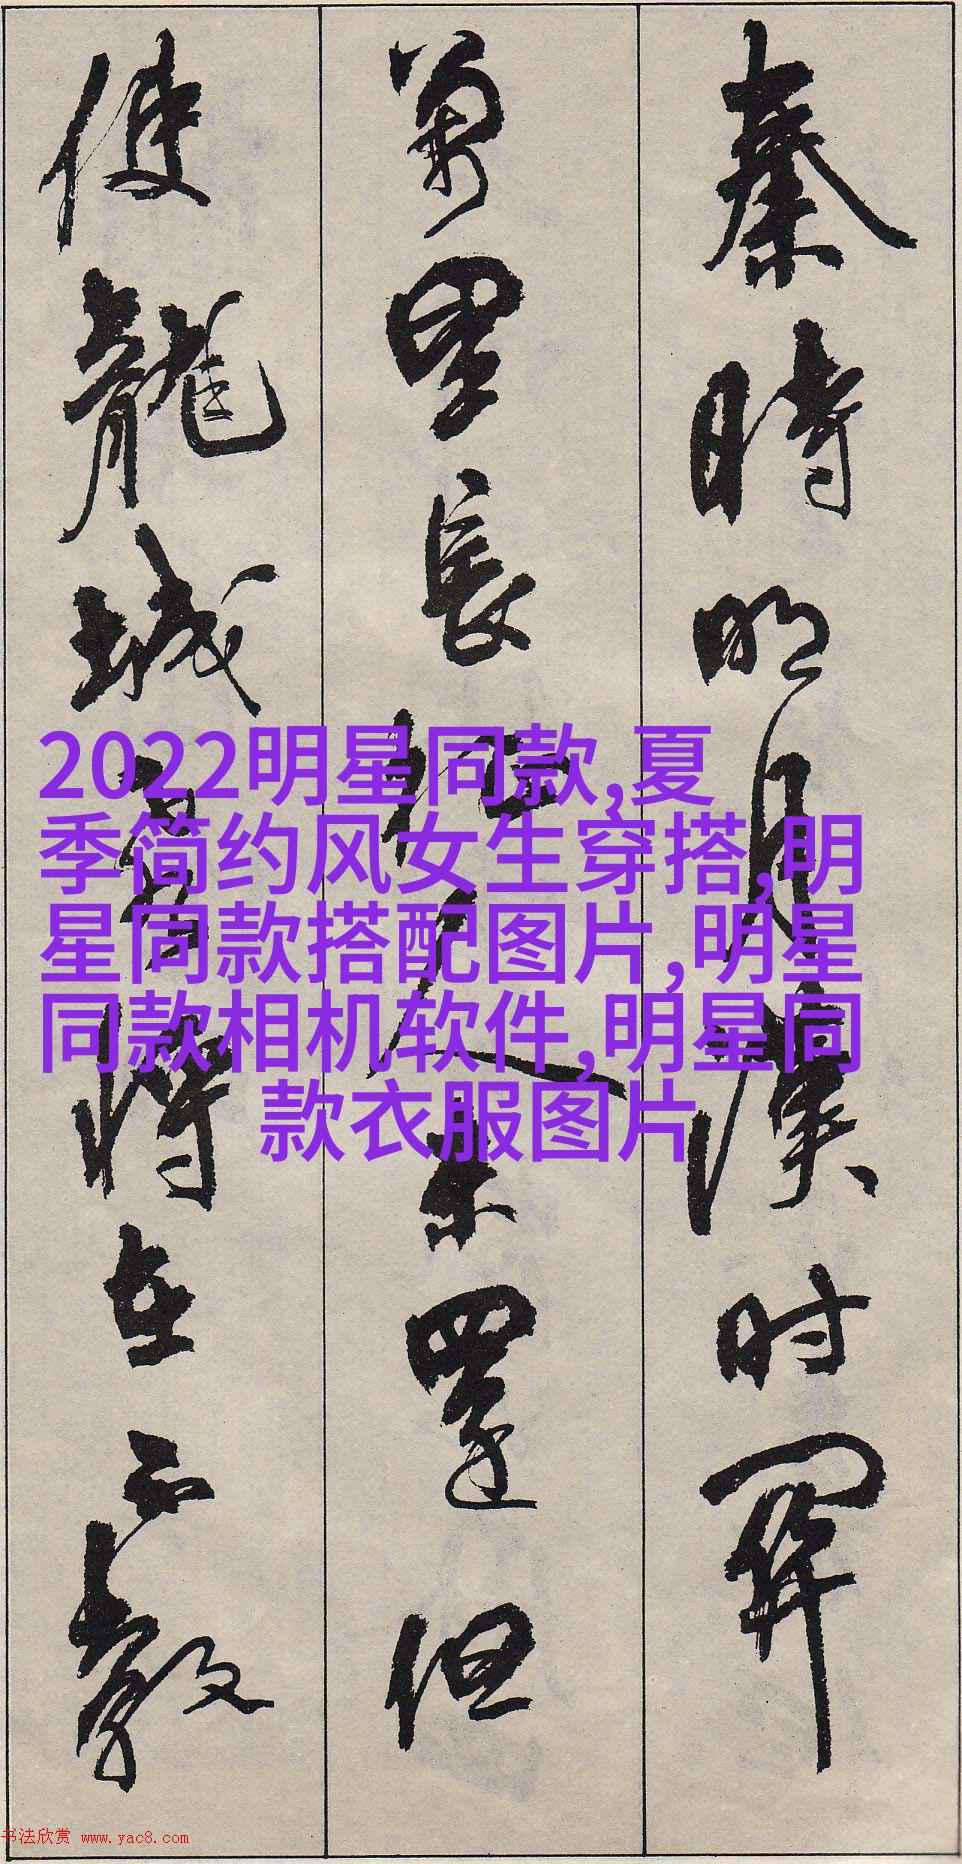 秦時明月漢时關
萬里長征人未還但
使龍城飛將在不教
2022明星同款,夏
季简约风女生穿搭,明
星同款搭配图片,明星
同款相机软件,明星同
款衣服图片
书法欣赏 www.yac8.com